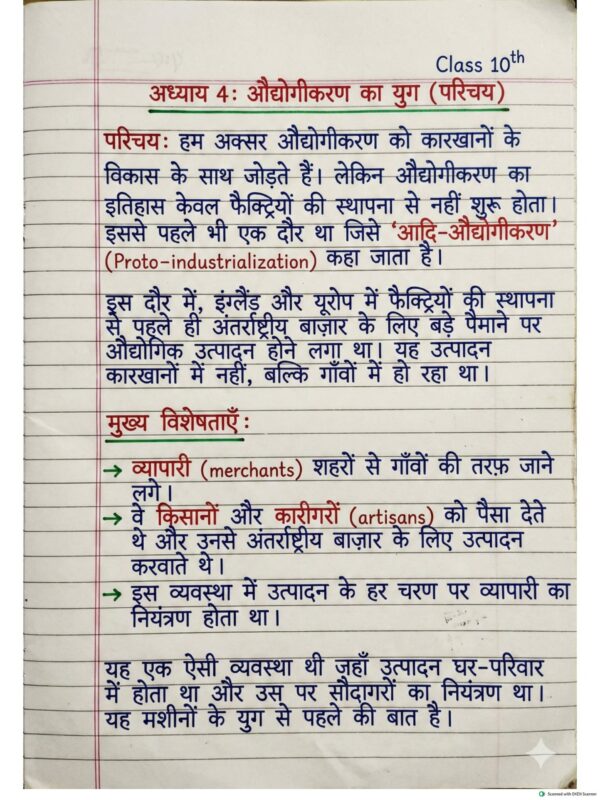 Class 10th
अध्याय 4: औद्योगीकरण का युग (परिचय)
परिचय: हम अक्सर औद्योगीकरण को कारखानों के
विकास के साथ जोड़ते हैं। लेकिन औद्योगीकरण का
इतिहास केवल फैक्ट्रियों की स्थापना से नहीं शुरू होता।
इससे पहले भी एक दौर था जिसे ‘आदि-औद्योगीकरण’
(Proto-industrialization) कहा जाता है।
इस दौर में, इंग्लैंड और यूरोप में फैक्ट्रियों की स्थापना
से पहले ही अंतर्राष्ट्रीय बाज़ार के लिए बड़े पैमाने पर
औद्योगिक उत्पादन होने लगा था। यह उत्पादन
कारखानों में नहीं, बल्कि गाँवों में हो रहा था।
मुख्य विशेषताएँ:
→ व्यापारी (merchants) शहरों से गाँवों की तरफ़ जाने
लगे।
→ वे किसानों और कारीगरों (artisans) को पैसा देते
थे और उनसे अंतर्राष्ट्रीय बाज़ार के लिए उत्पादन
करवाते थे।
→ इस व्यवस्था में उत्पादन के हर चरण पर व्यापारी का
नियंत्रण होता था।
यह एक ऐसी व्यवस्था थी जहाँ उत्पादन घर-परिवार
में होता था और उस पर सौदागरों का नियंत्रण था।
यह मशीनों के युग से पहले की बात है।
Scanned with OKEN Scanner